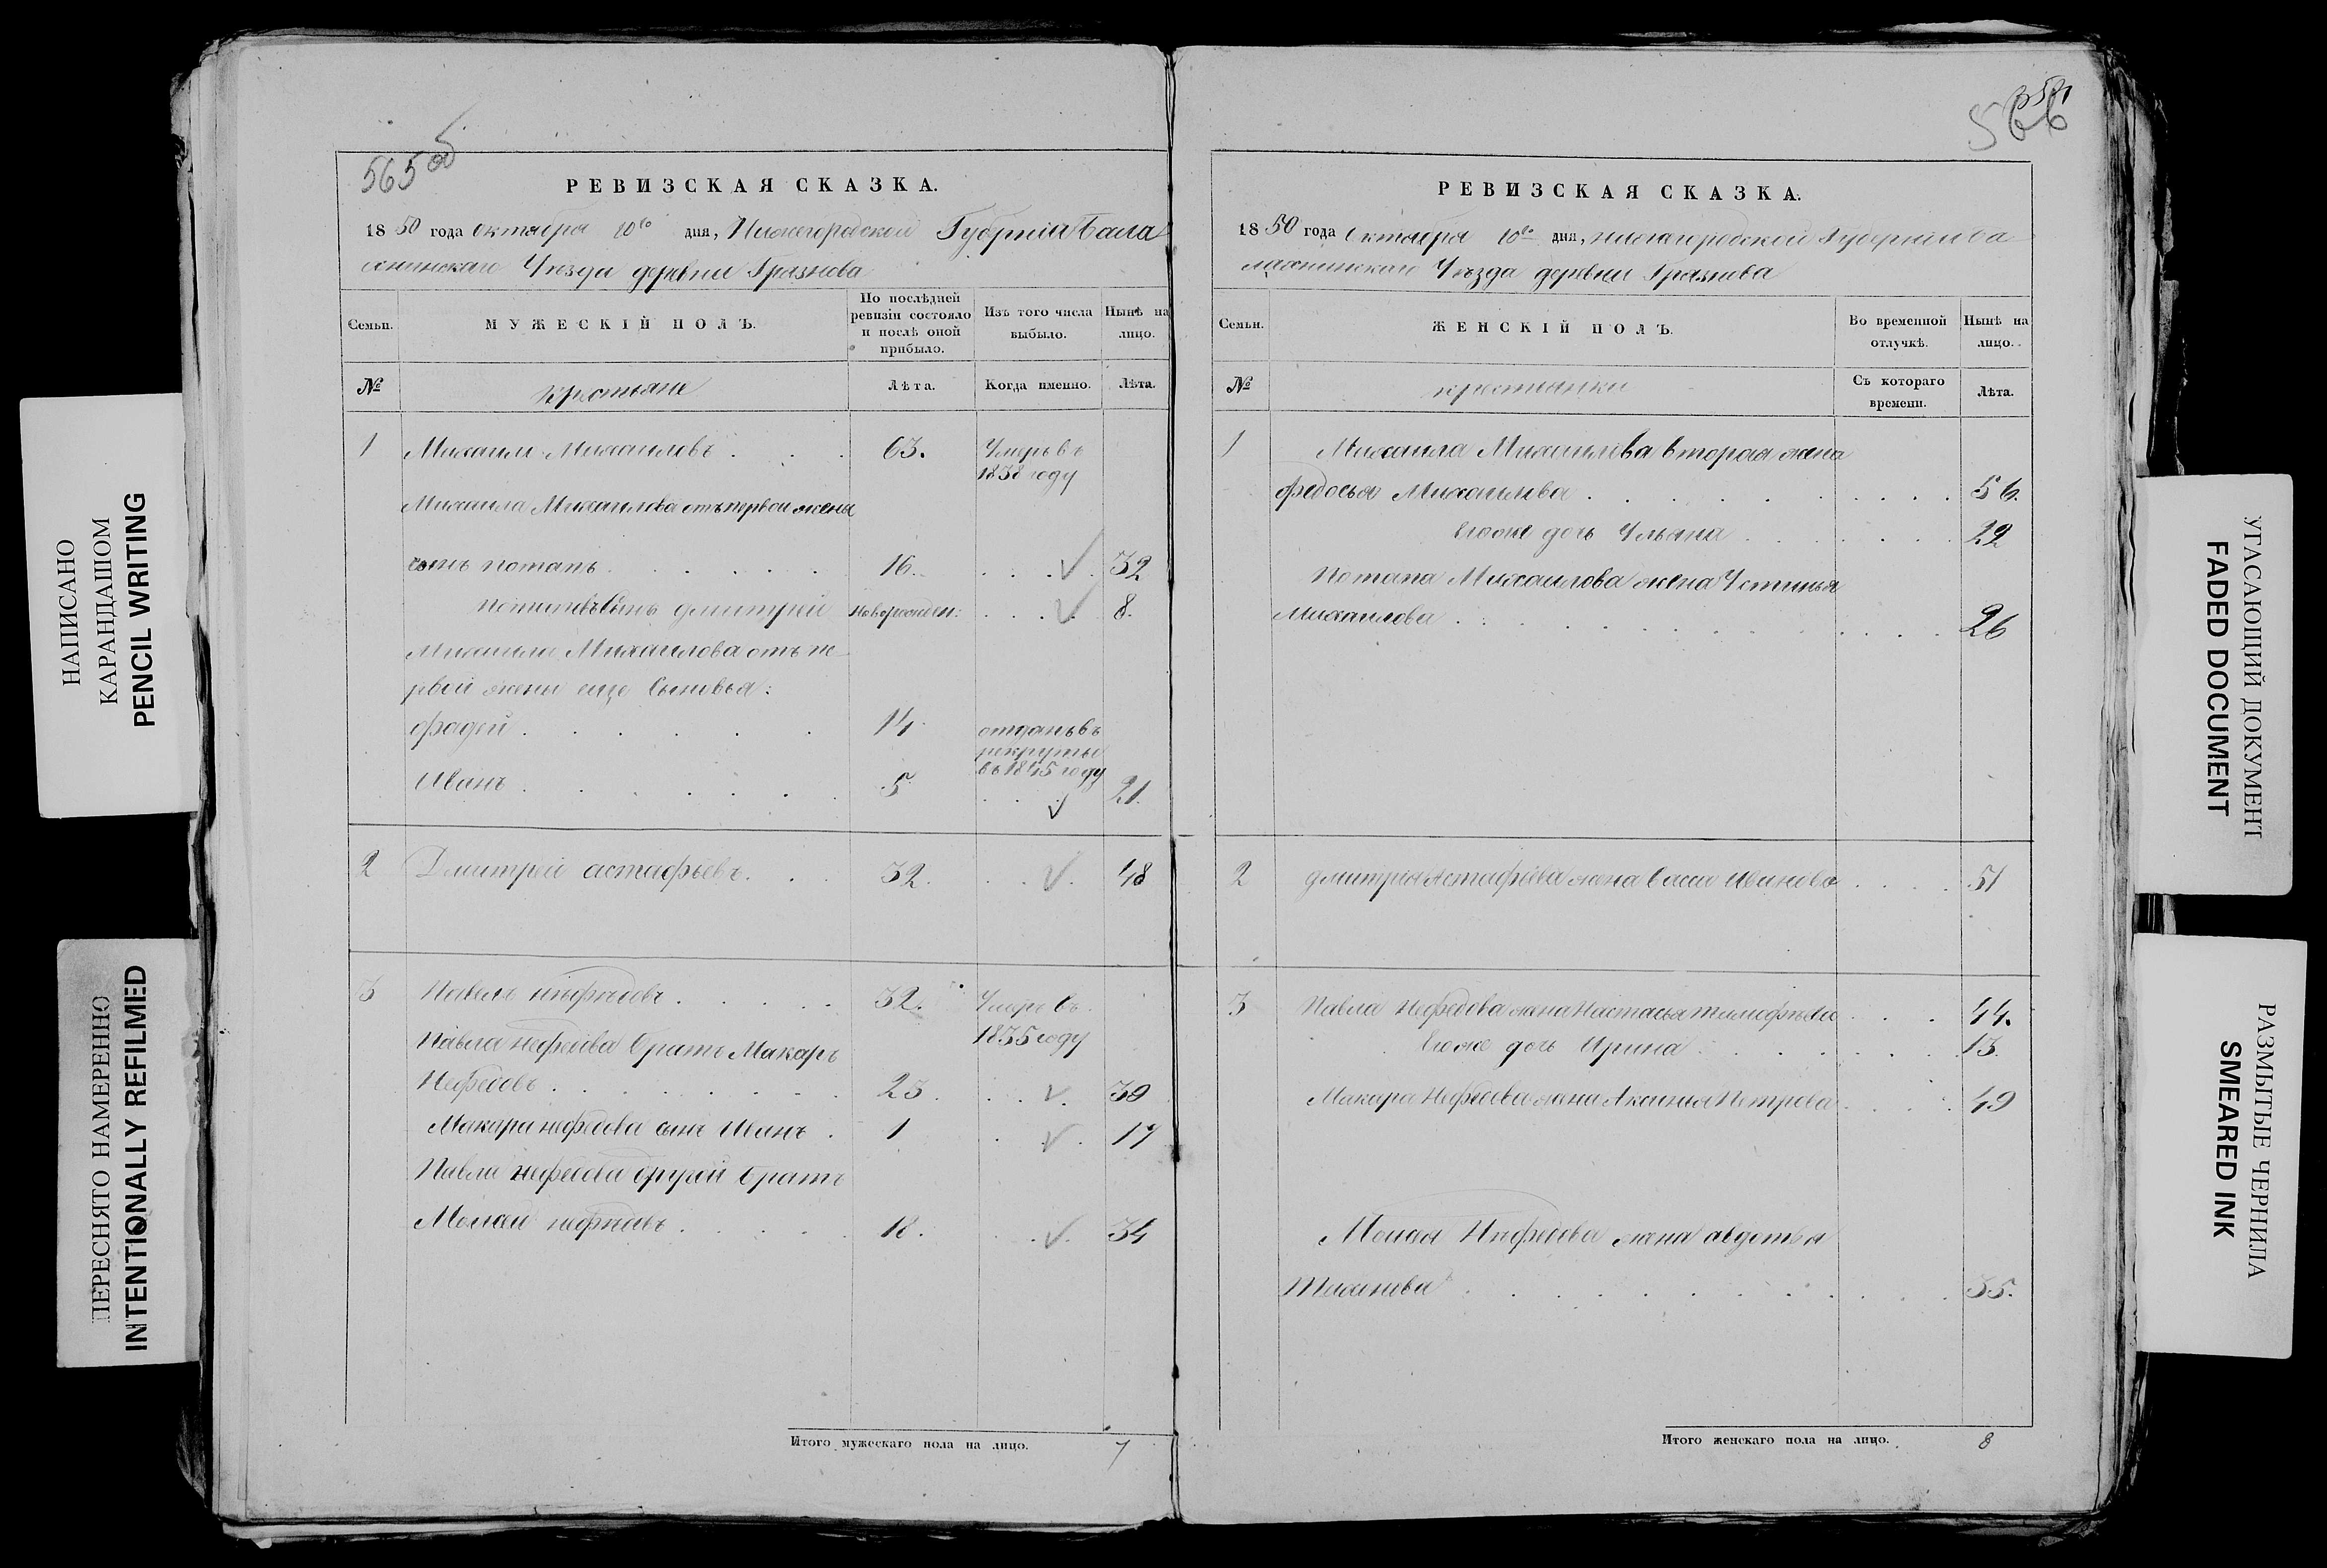 НАПИСАНО
КАРАНДАШОМ
PENCIL WRITING
ПЕРЕСНЯТО НАМЕРЕННО
INTENTIONALLY REFILMED
565 об
РЕВИЗСКАЯ СКАЗКА.
1850 года Октября 10го дня, Нижегородской Губернiи Бала
хнинскаго Уѣзда деревни Грязнова
Семьи. МУЖЕСКIЙ ПОЛЪ. По послѣдней ревизiи состояло и послѣ оной прибыло. Изъ того числа выбыло. Нынѣ на лицо.
№ Крестьяне Лѣта. Когда именно. Лѣта.
1 Михаилъ Михаиловъ . . . 63. Умеръ въ
1838 году
Михаила Михаилова отъ первой жены
сынъ Потапъ . . . . . 16. . . . 32
Потаповъ сынъ Дмитрiй новорожден: . . . . 8.
Михаила Михаилова отъ пе
рвой жены еще Сыновья:
Фадей . . . . . . 14. отданъ въ
рекруты
въ 1845 году
Иванъ . . . . . . 5 . . 21.
2 Дмитрей Астафьевъ . . . 32. . . . 48
3 Павелъ Нефедовъ . . . . . 32. Умеръ въ
1835 году
Павла Нефедова братъ Макаръ
Нефедовъ . . . . . . . 23. . . . 39
Макара Нефедова сынъ Иванъ . 1 . . . 17
Павла Нефедова другой братъ
Моисей Нефедовъ . . . . . 18. . . . 34
Итого мужескаго пола на лицо. 7
566
РЕВИЗСКАЯ СКАЗКА.
1850 года Октября 10го дня, Нижегородской Губернiи Ба
лахнинскаго Уѣзда деревни Грязнова
Семьи. ЖЕНСКIЙ ПОЛЪ. Во временной отлучкѣ. Нынѣ на лицо.
№ крестьянки Съ котораго времени. Лѣта.
1 Михаила Михаилова вторая жена
Федосья Михаилова . . . . . . . . . 56.
Егоже дочь Ульяна . . . . . . . 22
Потапа Михаилова жена Устинья
Михаилова . . . . . . . . . . . . 26
2 Дмитрiя Астафьева жена Васса Иванова . . . . 51
3 Павла Нефедова жена Настасья Тимофѣева . . . 44.
Егоже дочь Ирина . . . . . . . 13.
Макара Нефедова жена Аксинья Петрова . . . . 49
Моисея Нефедова жена Авдотья
. . . . . . . . . . . . 35.
Итого женскаго пола на лицо. 8
УГАСАЮЩИЙ ДОКУМЕНТ
FADED DOCUMENT
РАЗМЫТЫЕ ЧЕРНИЛА
SMEARED INK